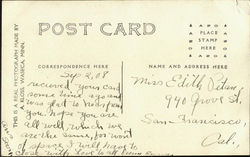 POST CARD
THIS IS A REAL PHOTOGRAPH MADE BY
A. KLOSS, WASECA, MINN.
PLACE
STAMP
HERE
CORRESPONDENCE HERE
NAME AND ADDRESS HERE
Sep 2, 08
received your card
some time ago and
was glad to
you. hope you are
all well, which we
are the same, for want
of space I will have to
close with love to all
Miss Edith
790 Grove St.
San Francisco,
Cal.